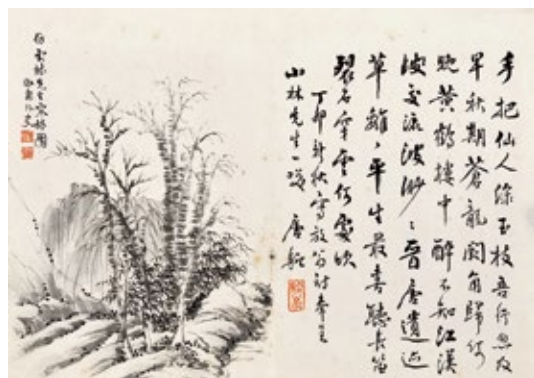 手把仙人綠玉枝吾行忽及
早秋期蒼龍闕角歸何
晚黃鶴樓中醉不知江漢
波交流波渺〻晉唐遺迹
草離〻平生最喜聽長笛
裂石穿雲何處吹
丁卯新秋寫放翁詩奉呈
小林先生一笑
雲林先生 圖